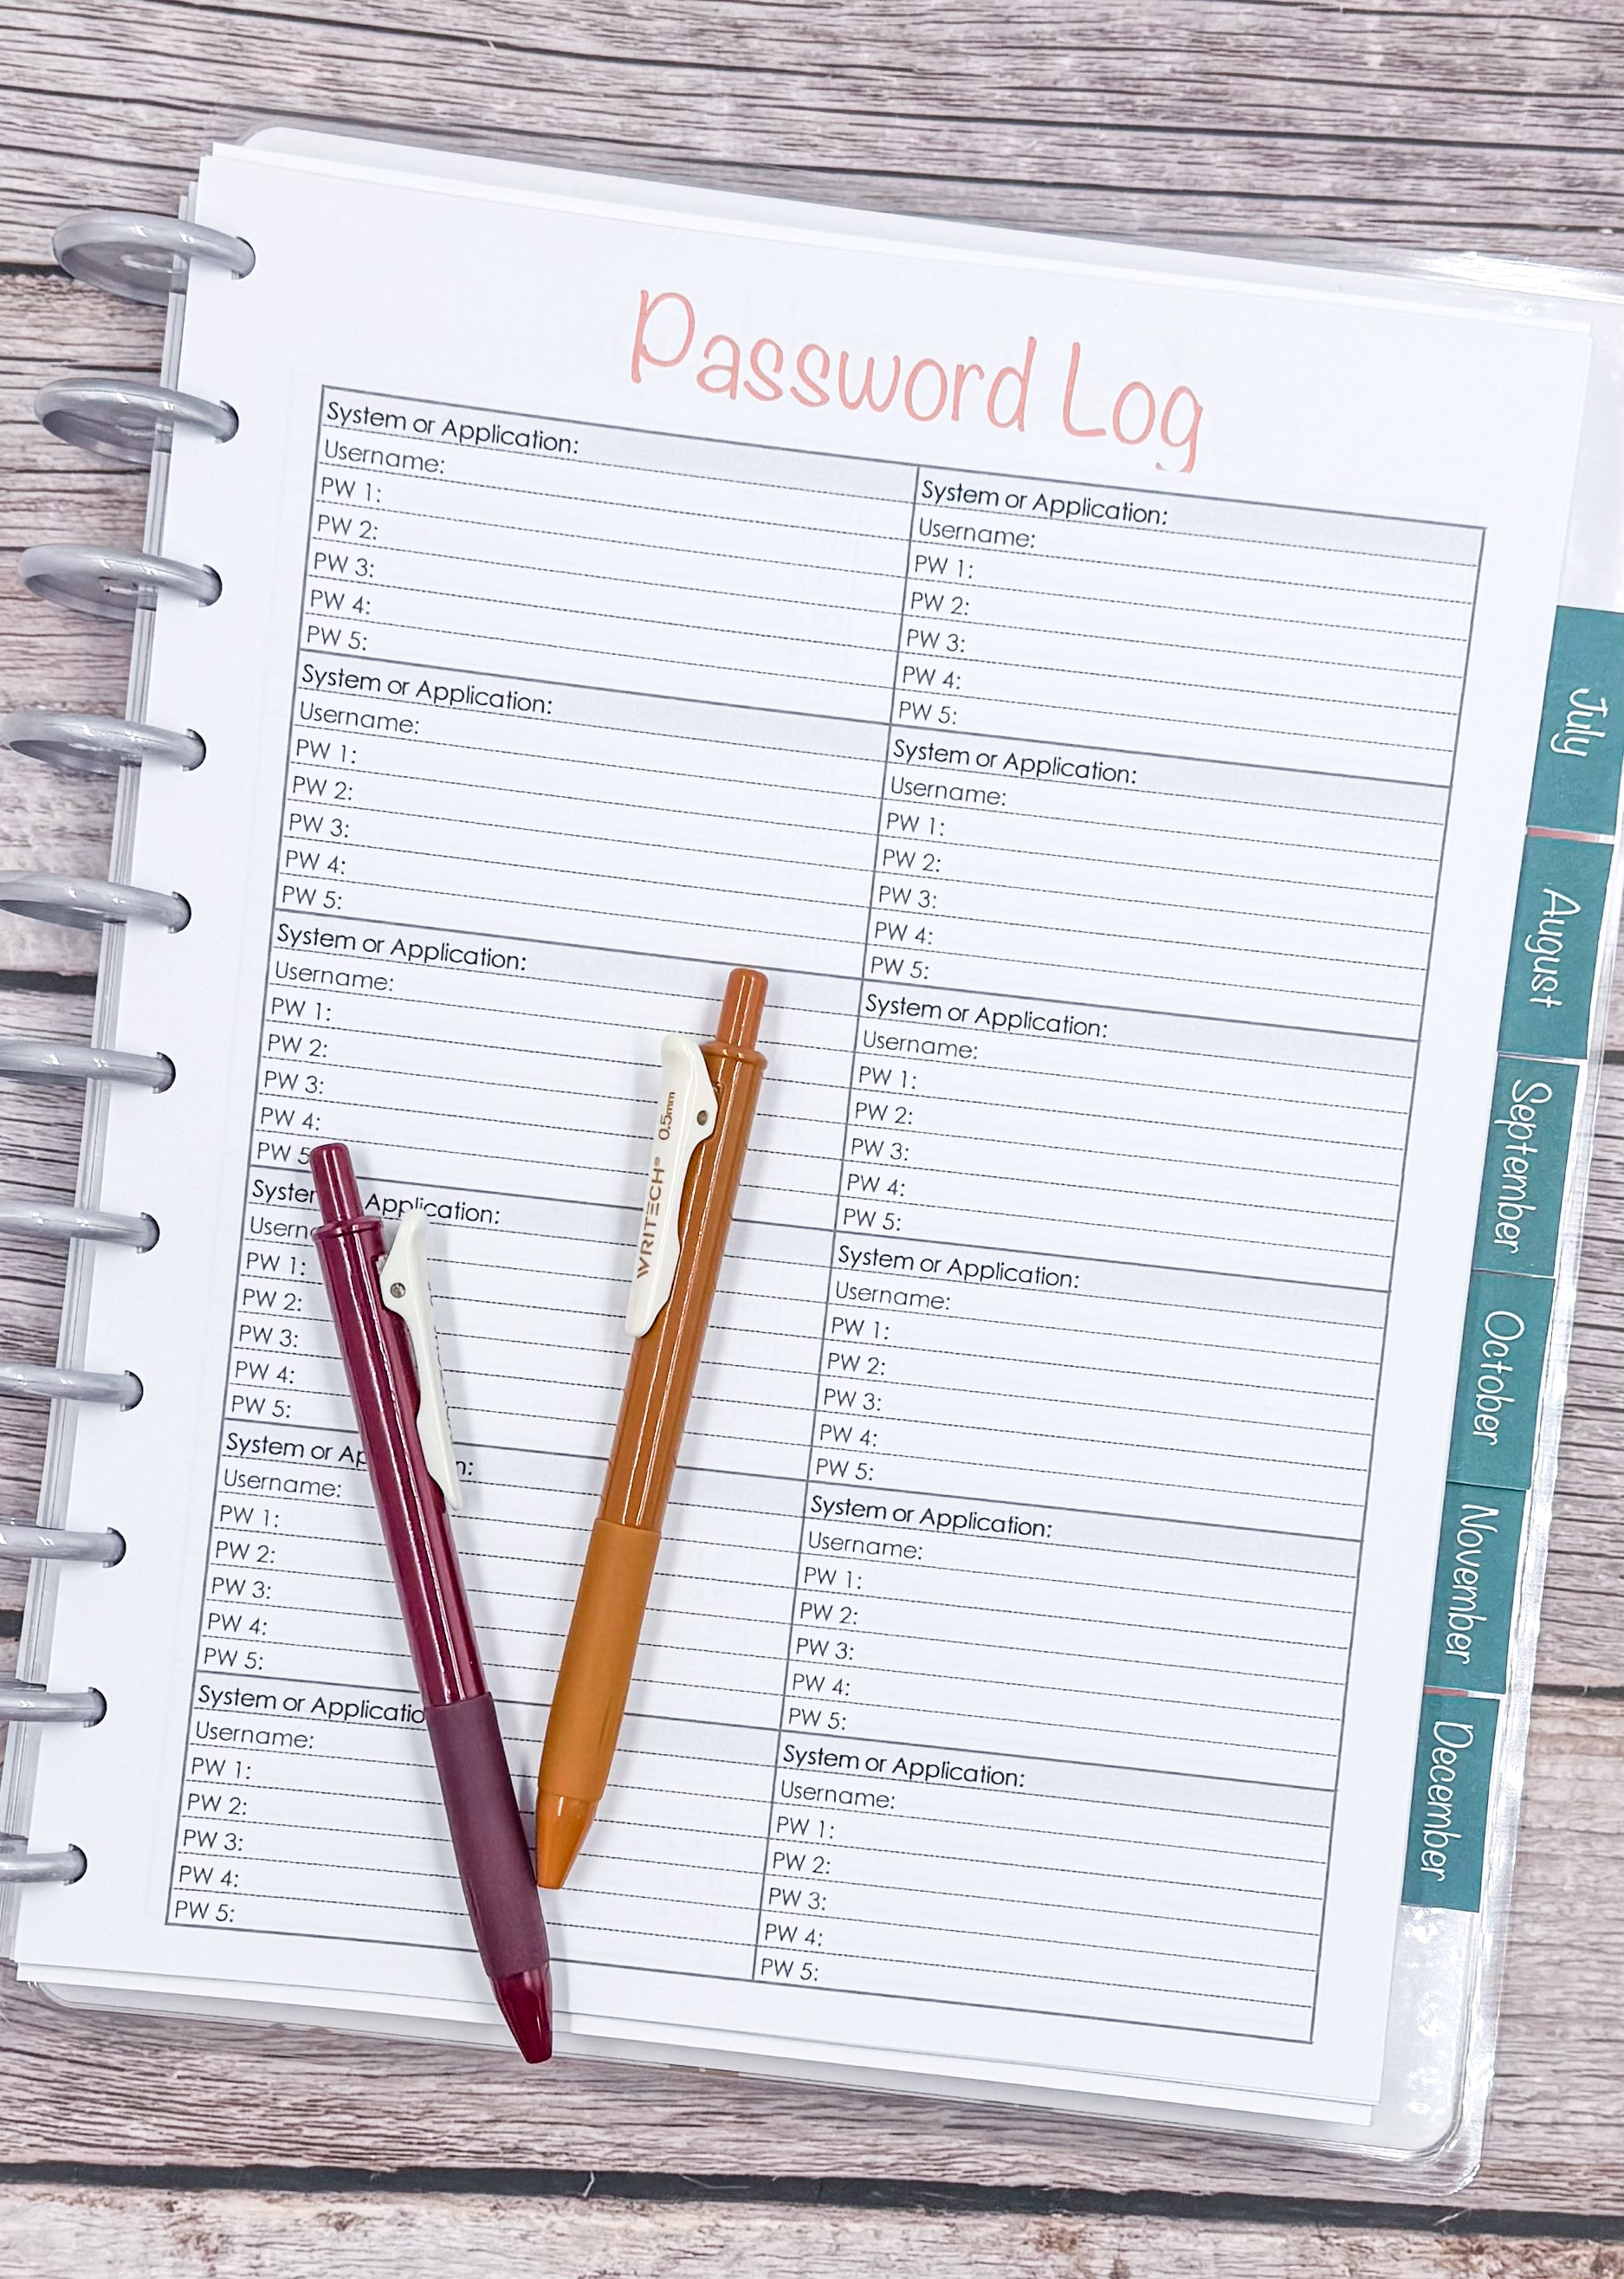 Password Log
System or Application:
Username:
PW 1:
PW 2:
PW 3:
PW 4:
PW 5:
System or Application:
Username:
PW 1:
PW 2:
PW 3:
PW 4:
PW 5:
System or Application:
Username:
PW 1:
PW 2:
PW 3:
PW 4:
PW 5
System Application:
Usern
PW 1:
PW 2:
PW 3:
PW 4:
PW 5:
System or Ap n:
Username:
PW 1:
PW 2:
PW 3:
PW 4:
PW 5:
System or Applicatio
Username:
PW 1:
PW 2:
PW 3:
PW 4:
PW 5:
System or Application:
Username:
PW 1:
PW 2:
PW 3:
PW 4:
PW 5:
System or Application:
Username:
PW 1:
PW 2:
PW 3:
PW 4:
PW 5:
System or Application:
Username:
PW 1:
PW 2:
PW 3:
PW 4:
PW 5:
System or Application:
Username:
PW 1:
PW 2:
PW 3:
PW 4:
PW 5:
System or Application:
Username:
PW 1:
PW 2:
PW 3:
PW 4:
PW 5:
System or Application:
Username:
PW 1:
PW 2:
PW 3:
PW 4:
PW 5:
WRITECH® 0.5mm
July
August
September
October
November
December